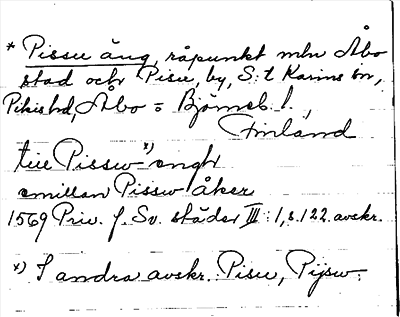 * Pissu äng, råpunkt mln Åbo
stad och Pisu, by, S:t Karins sn,
Pikis hd, Åbo o Björneb. l.,
Finland
till Pissw x) engh
emillan Pissw åker
1569 Priv. f. Sv. städer III: 1, s. 122. avskr.
x) I andra avskr. Pisu, Pijsw.